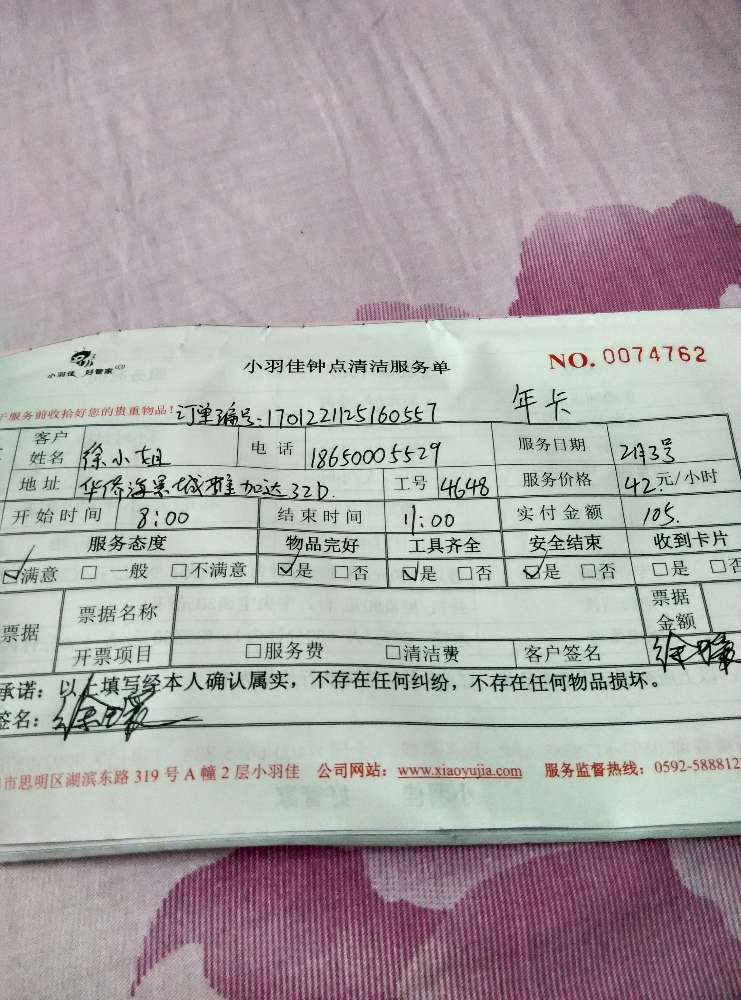 小羽佳 好管家
小羽佳钟点清洁服务单 NO. 0074762
服务前收拾好您的贵重物品! 订单编号:1701221125160557 年卡
客户姓名 徐小姐 电话 18650005529 服务日期 2月3号
地址 华侨海景城雅加达32D 工号 4648 服务价格 42元/小时
开始时间 8:00 结束时间 11:00 实付金额 105.
服务态度 物品完好 工具齐全 安全结束 收到卡片
☑满意 □一般 □不满意 ☑是 □否 ☑是 □否 ☑是 □否 □是 □否
票据 票据名称 票据金额
开票项目 □服务费 □清洁费 客户签名
承诺:以上填写经本人确认属实,不存在任何纠纷,不存在任何物品损坏。
签名:
市思明区湖滨东路 319 号 A 幢 2 层小羽佳 公司网站:www.xiaoyujia.com 服务监督热线:0592-588812